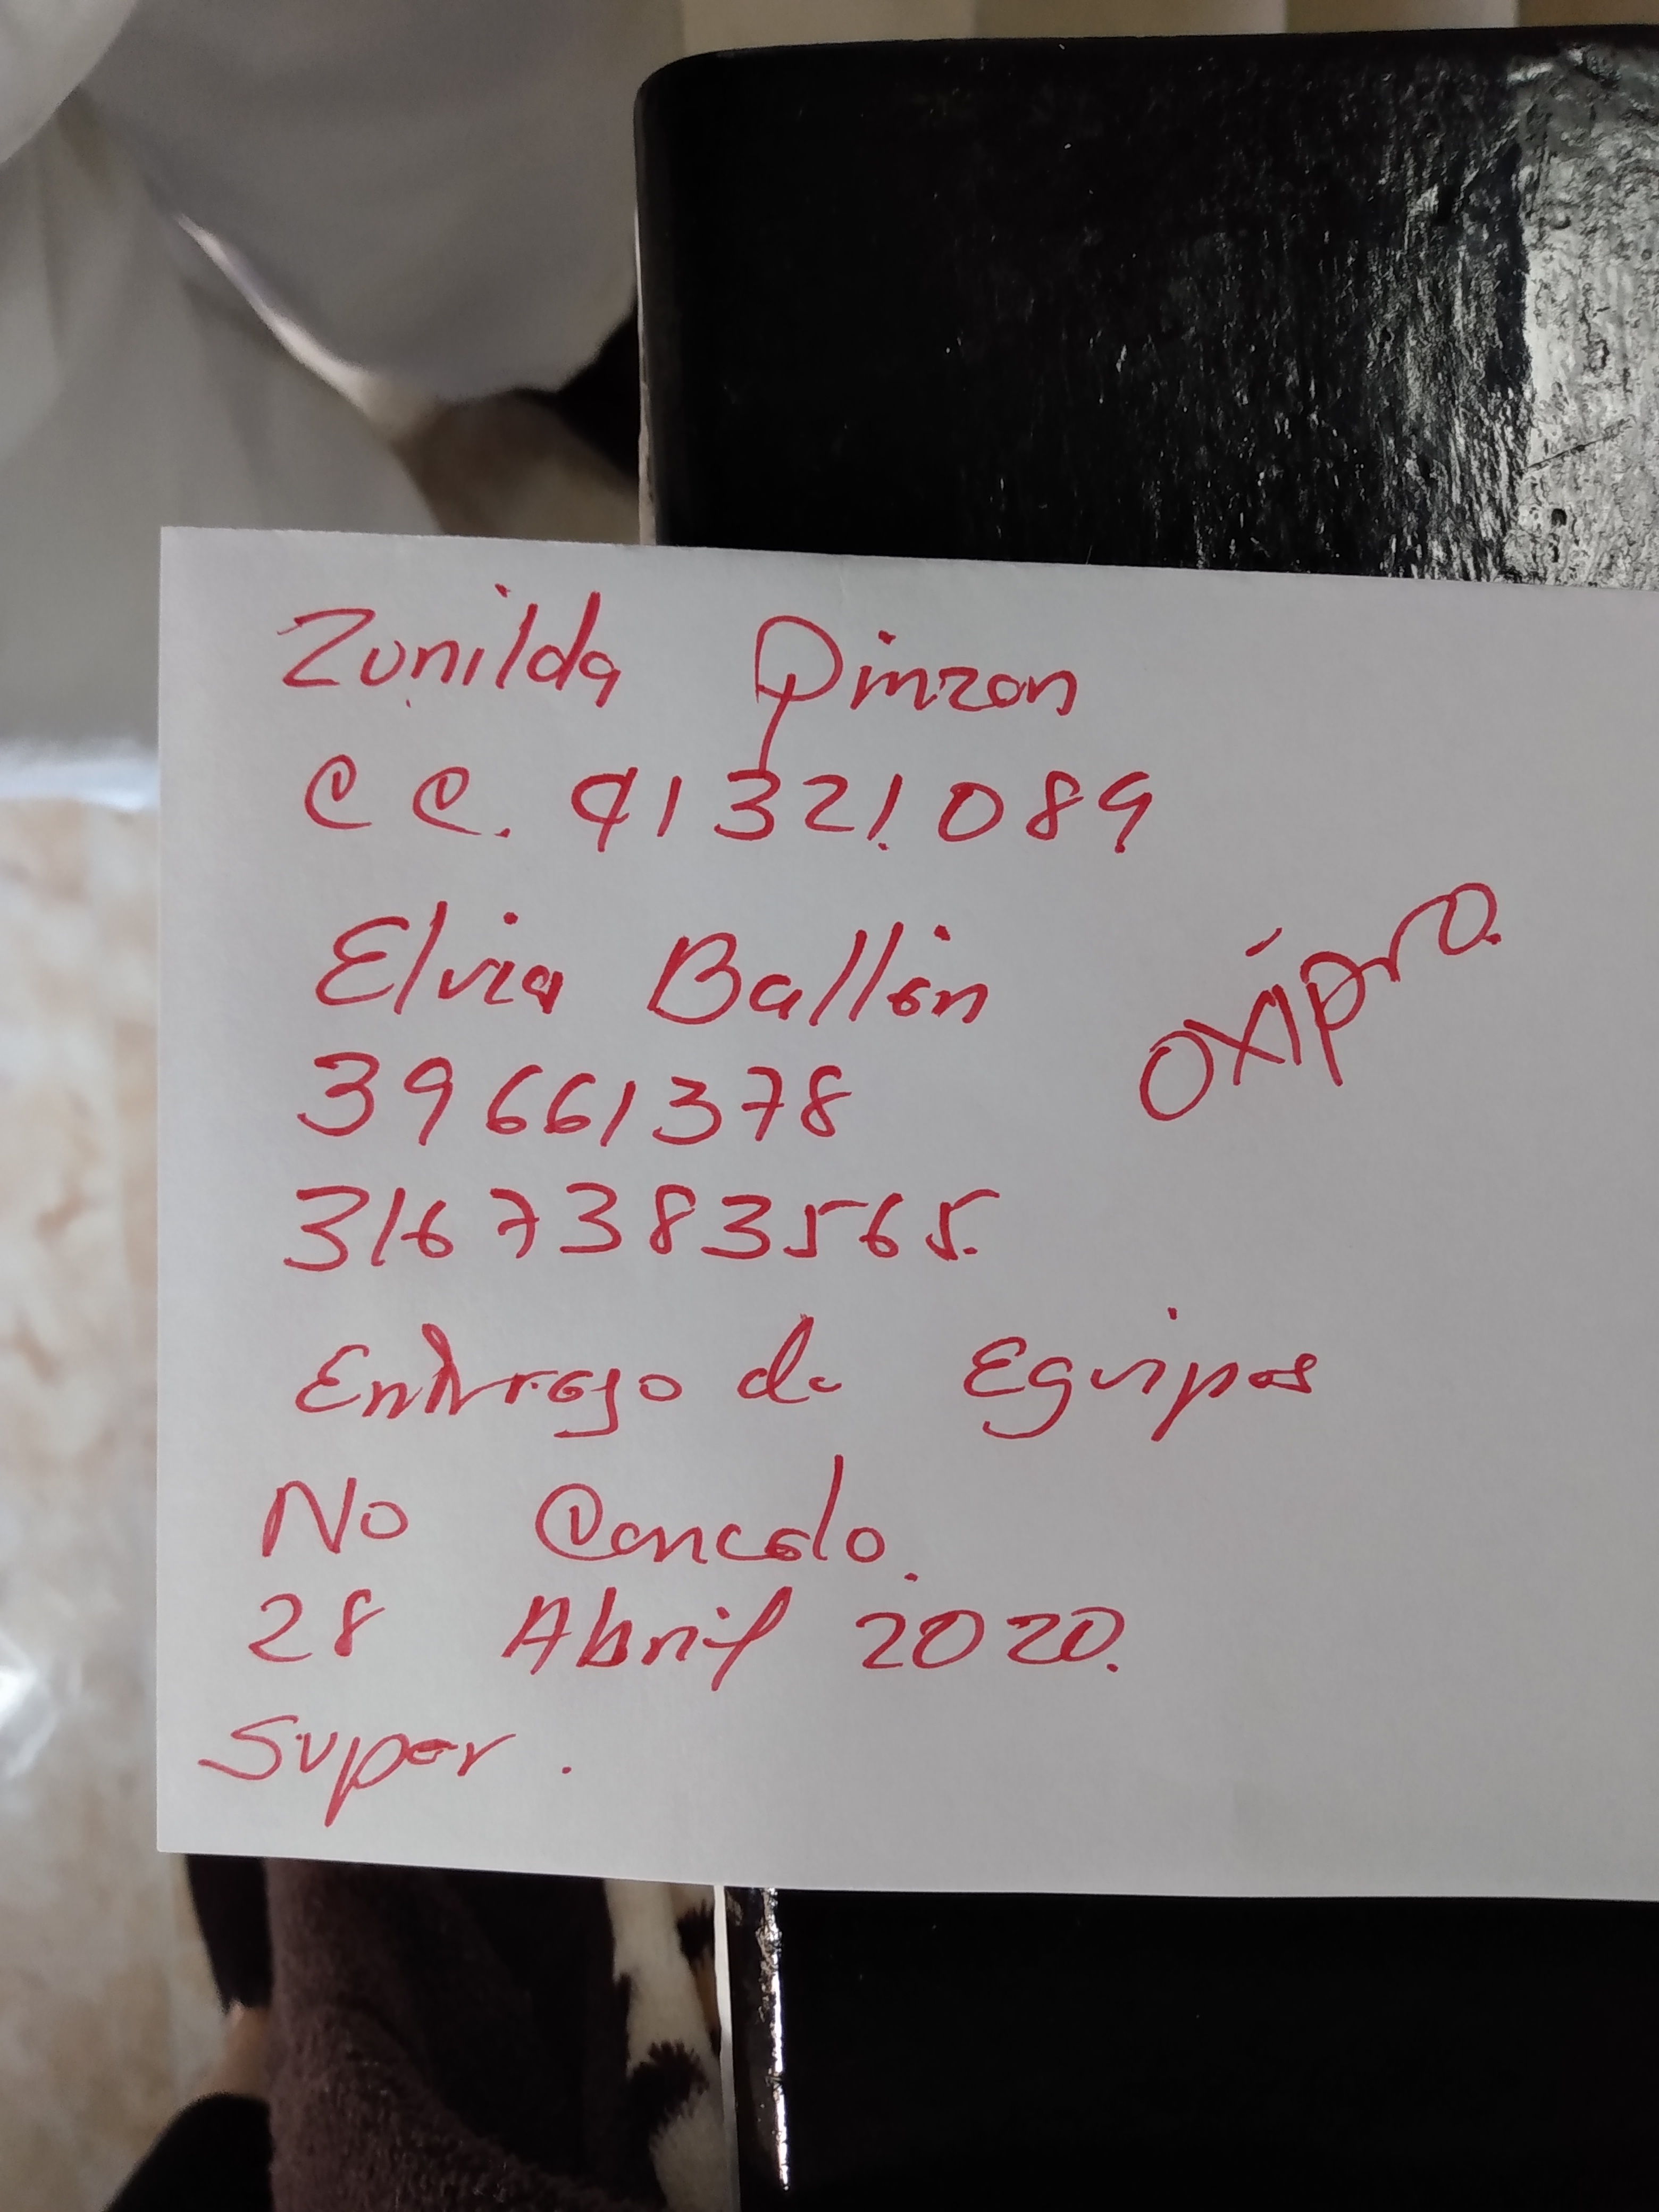 Zunilda Pinzon
CC. 41321.089
Elvia Ballén
39661378
oxípro.
3167383565.
Entrego de Equipos
No Cancelo.
28 Abril 2020.
Super.